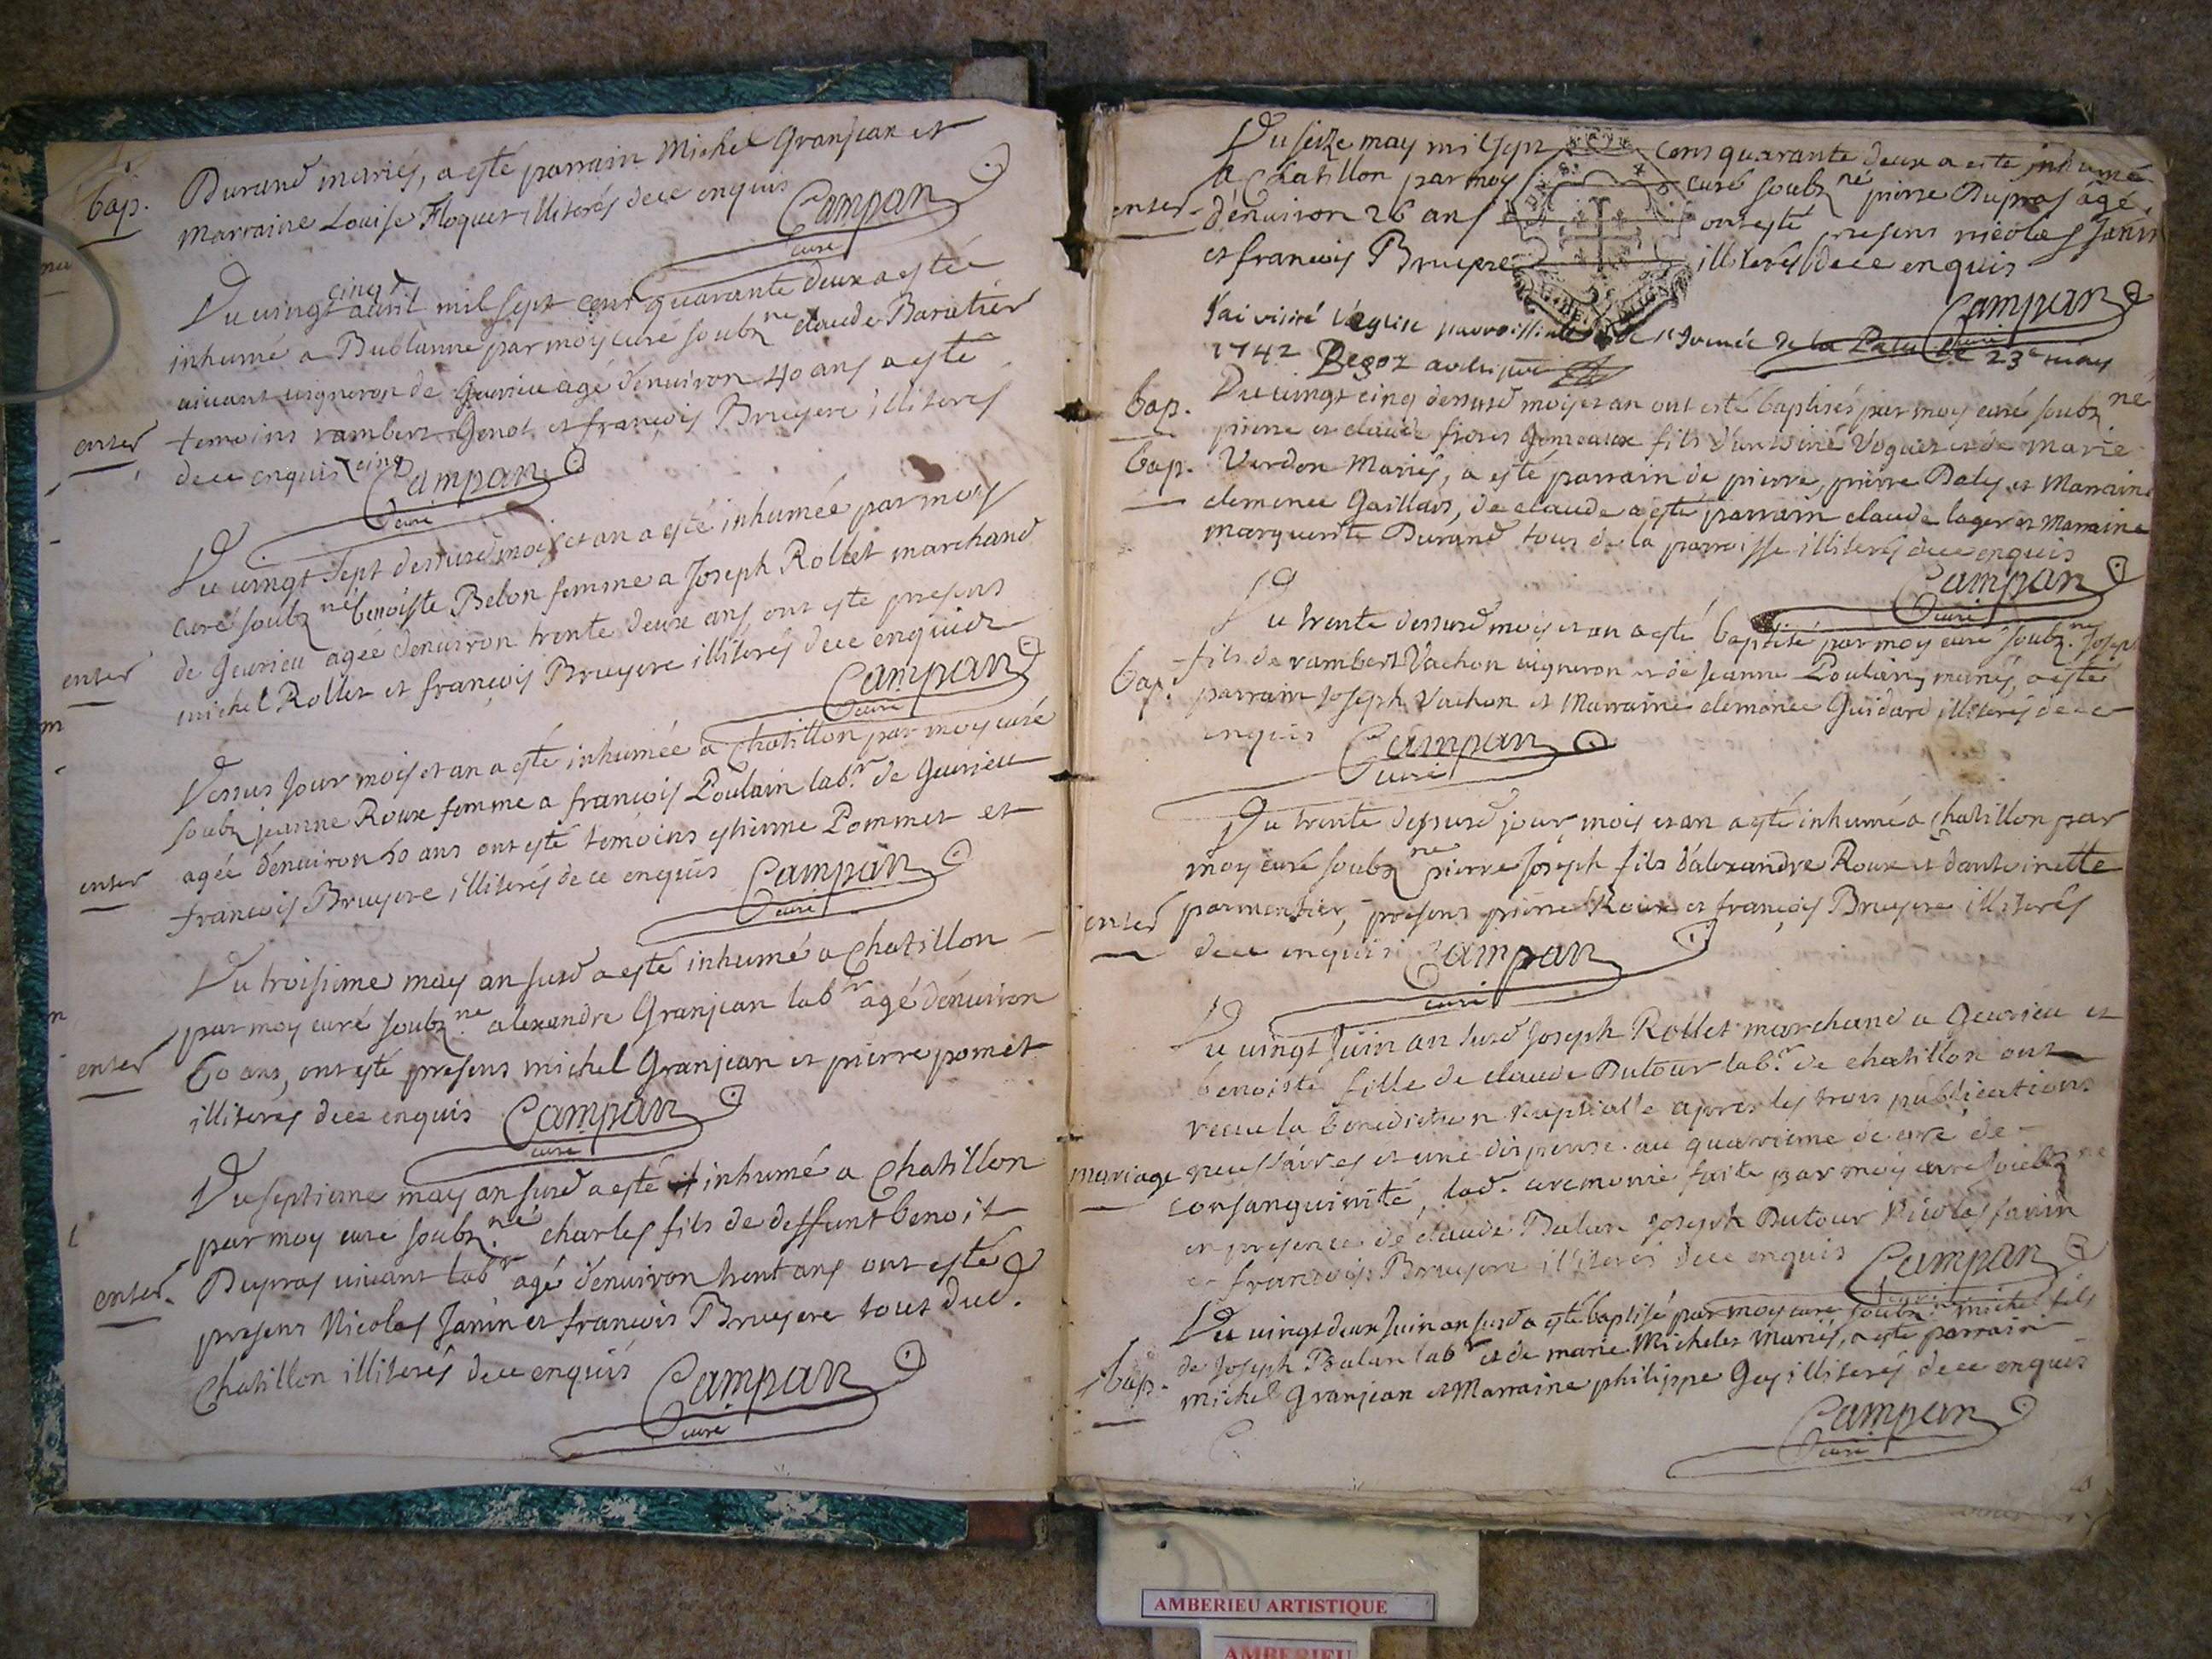 bap. Durand mariés, a esté parrain Michel Granjean et
Marraine Louise Floquet illiterés dece enquis Campan
curé
Du vingt cinq avril mil sept cent quarante deux a esté
inhumé a Bublanne par moy curé soubz.né claude Baratier
vivant vigneron de Gevrieu agé denviron 40 ans a esté
enter temoins rambert Genot et françois Bruyere illiterés
dece enquis Campan
curé
Du vingt sept dessusd mois et an a esté inhumée par moy
curé soubz.né benoiste Belon femme a Joseph Rollet marchand
enter de Gevrieu agée denviron trente deux ans, ont esté presens
michel Rollet et françois Bruyere illiterés dece enquis
Campan
curé
Dessus jour mois et an a esté inhumée a Chatillon par moy curé
soubz jeanne Roux femme a francois Poulain lab.r de Gevrieu
enter agée denviron 50 ans ont esté temoins estienne Pommet et
francois Bruyere illiterés dece enquis Campan
curé
Du troisieme may an susd a esté inhumé a Chatillon
par moy curé soubz.né alexandre Granjean lab.r agé denviron
enter 60 ans, ont esté presens michel Granjean et pierre pomet
illiterés dece enquis Campan
curé
Du septieme may an susd a esté inhumé a Chatillon
par moy curé soubz.né charles fils de deffunt benoit
enter. Dupras vivant lab.r agé denviron trent ans ont esté
presens Nicolas Janin et francois Bruyere tout dud.
Chatillon illiterés dece enquis Campan
curé
Du seize may mil sept cens quarante deux a esté inhumé
A Chatillon par moy curé soubz.né pierre Dupras agé
enter denviron 26 ans ont esté presens nicolas Janin
et francois Bruyere illiterés dece enquis
Campan
curé
J'ai visité l'eglise parroissialle de la Palu ce 23e may
1742 Begoz
bap. Du vingt cinq dessusd mois et an ont esté baptisés par moy curé soubz.né
pierre et claude freres Gemeaux fils d'antoine Voguet et de marie
bap. Verdon Mariés, a esté parrain de pierre, pierre Baley et Marraine
clemence Gaillard, de claude a esté parrain claude lager et Marraine
marguerite Durand tous de la parroisse illiterés dece enquis
Campan
curé
Du trente dessusd mois et an a esté baptisé par moy curé soubz.né Joseph
bap. fils de rambert Vachon vigneron et de jeanne Poulain mariés, a esté
parrain joseph Vachon et Marraine clemence Guidard illiterés de ce
enquis Campan
curé
Du trente dessusd jour mois et an a esté inhumé a Chatillon par
moy curé soubz.né pierre Joseph fils d'alexandre Roux et d'antoinette
enter parmentier, presens pierre Roux et françois Bruyere illiterés
dece enquis Campan
curé
Du vingt Juin an susd Joseph Rollet marchand a Gevrieu et
benoiste fille de claude Dutour lab.r de chatillon ont
receu la benediction nuptialle apres les trois publications
mariage necessaires et une dispense au quatrieme degré de
consanguinité, lad. ceremonie faite par moy curé soubz.né
en presence de claude Balan Joseph Dutour Nicolas Janin
et francois Bruyere illiterés dece enquis Campan
curé
Du vingt deux Juin an susd a esté baptisé par moy curé soubz.né michel fils
bap. de Joseph Balan lab.r et de marie Michelet Mariés, a esté parrain
michel Granjean et Marraine philippe Gey illiterés dece enquis
Campan
curé
AMBERIEU ARTISTIQUE
AMBERIEU